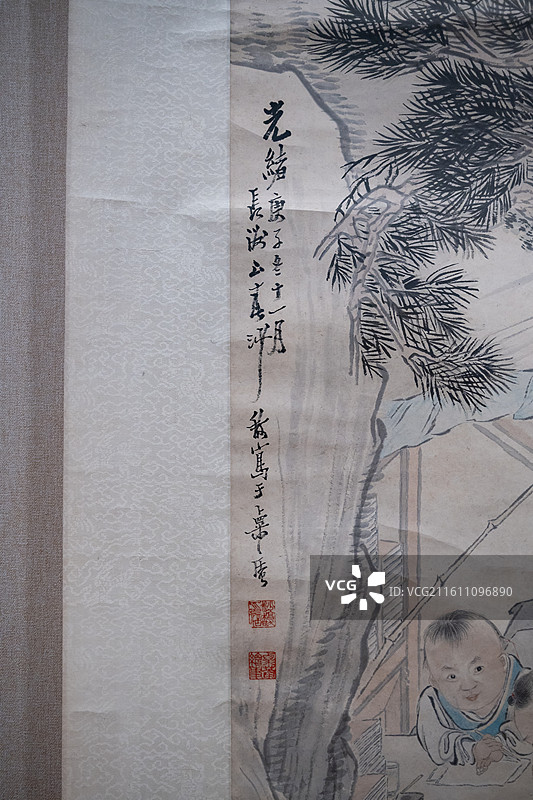 光緒庚子冬十一月
長洲山春沙馥寫于
VCG
ID:VCG211611096890